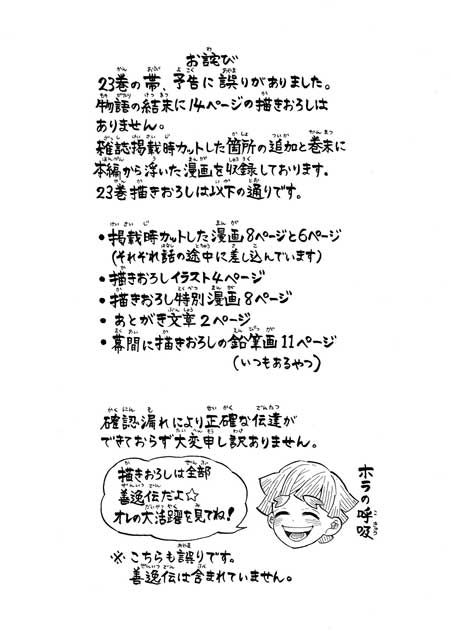 お詫び
23巻の帯、予告に誤りがありました。
物語の結末に14ページの描きおろしは
ありません。
雑誌掲載時カットした箇所の追加と巻末に
本編から浮いた漫画を収録しております。
23巻描きおろしは以下の通りです。
・掲載時カットした漫画8ページと6ページ
(それぞれ話の途中に差し込んでいます)
・描きおろしイラスト4ページ
・描きおろし特別漫画8ページ
・あとがき文章2ページ
・幕間に描きおろしの鉛筆画11ページ
(いつもあるやつ)
確認漏れにより正確な伝達が
できておらず大変申し訳ありません。
描きおろしは全部
善逸伝だよ☆
オレの大活躍を見てね!
ホラの呼吸
※こちらも誤りです。
善逸伝は含まれていません。